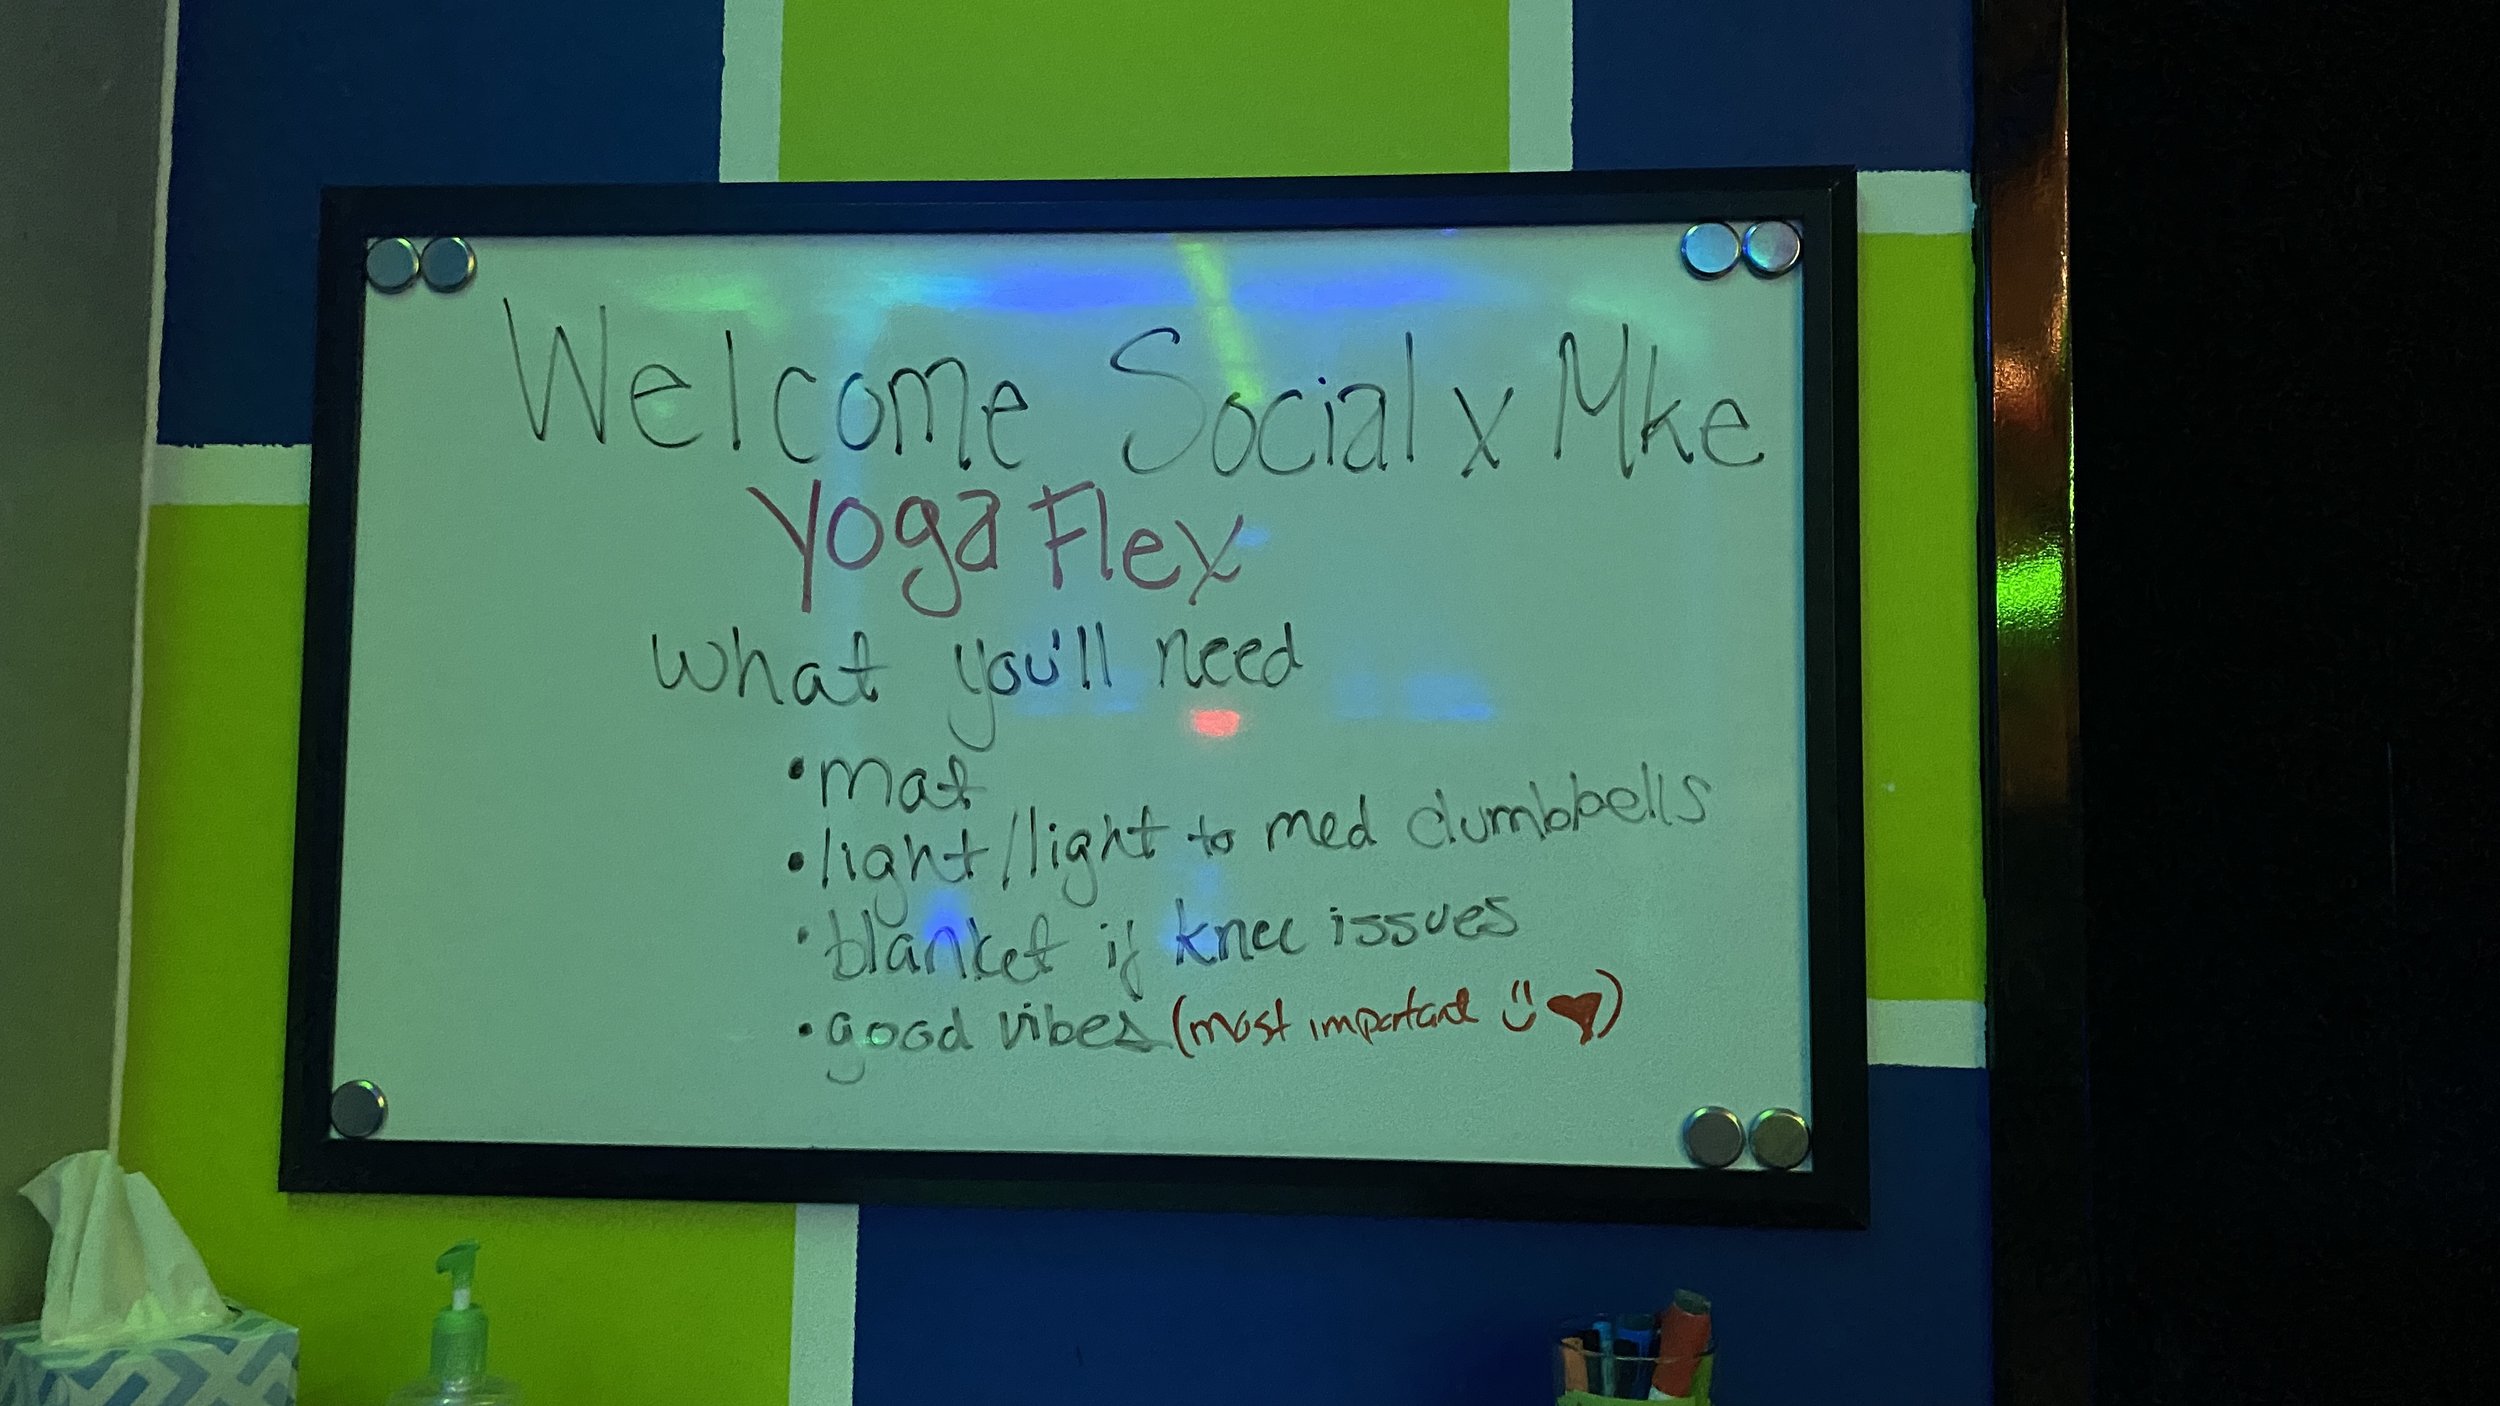 Welcome Social x Mke
Yoga Flex
What you'll need
• mat
• light/light to med dumbbells
• blanket if knee issues
• good vibes (most important ü ♥)